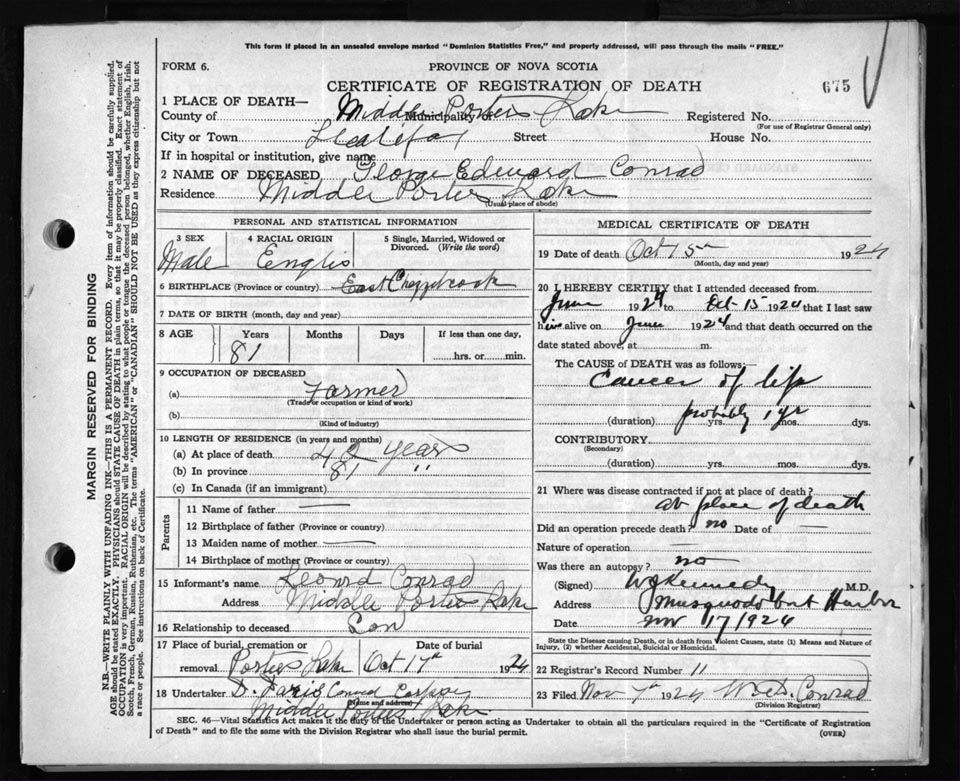 This form if placed in an unsealed envelope marked "Dominion Statistics Free," and properly addressed, will pass through the mails "FREE."
FORM 6.
PROVINCE OF NOVA SCOTIA
CERTIFICATE OF REGISTRATION OF DEATH
675
1 PLACE OF DEATH—
County of Middle Porters Lake Municipality of Registered No.
(For use of Registrar General only)
City or Town Halifax Street House No.
If in hospital or institution, give name
2 NAME OF DECEASED George Edward Conrad
Residence Middle Porters Lake
(Usual place of abode)
PERSONAL AND STATISTICAL INFORMATION
3 SEX 4 RACIAL ORIGIN 5 Single, Married, Widowed or Divorced. (Write the word)
Male Englis
6 BIRTHPLACE (Province or country) East Chezzetcook
7 DATE OF BIRTH (month, day and year)
8 AGE Years Months Days If less than one day,
81 hrs. or min.
9 OCCUPATION OF DECEASED
(a) Farmer
(Trade or occupation or kind of work)
(b)
(Kind of industry)
10 LENGTH OF RESIDENCE (in years and months)
(a) At place of death years
(b) In province 81 "
(c) In Canada (if an immigrant)
Parents
11 Name of father —
12 Birthplace of father (Province or country)
13 Maiden name of mother —
14 Birthplace of mother (Province or country)
15 Informant's name Leonard Conrad
Address Middle Porters Lake
16 Relationship to deceased Son
17 Place of burial, cremation or removal Date of burial
Porters Lake Oct 17th 1924
18 Undertaker D. Faris Conrad
(Name and address)
Middle Porters Lake
MEDICAL CERTIFICATE OF DEATH
19 Date of death Oct 15 1924
(Month, day and year)
20 I HEREBY CERTIFY that I attended deceased from
June 1924 to Oct 15 1924 that I last saw
him alive on June 1924 and that death occurred on the
date stated above, at m.
The CAUSE OF DEATH was as follows:
Cancer of lip
probably 1 yr
(duration) yrs. mos. dys.
CONTRIBUTORY
(Secondary)
(duration) yrs. mos. dys.
21 Where was disease contracted if not at place of death?
at place of death
Did an operation precede death? no Date of —
Nature of operation —
Was there an autopsy? no
(Signed) W J Kennedy M.D.
Address Musquodoboit Harbor
Date Nov 17/1924
State the Disease causing Death, or in death from Violent Causes, state (1) Means and Nature of Injury, (2) whether Accidental, Suicidal or Homicidal.
22 Registrar's Record Number 11
23 Filed Nov 7th 1924 Conrad
(Division Registrar)
SEC. 46—Vital Statistics Act makes it the duty of the Undertaker or person acting as Undertaker to obtain all the particulars required in the "Certificate of Registration
of Death" and to file the same with the Division Registrar who shall issue the burial permit.
(OVER)
MARGIN RESERVED FOR BINDING
N.B.—WRITE PLAINLY WITH UNFADING INK—THIS IS A PERMANENT RECORD. Every item of information should be carefully supplied.
AGE should be stated EXACTLY. PHYSICIANS should STATE CAUSE OF DEATH in plain terms, so that it may be properly classified. Exact statement of
OCCUPATION is very important. RACIAL ORIGIN will be described by stating to what people or tongue the deceased person belonged, whether English, Irish,
Scotch, French, German, Russian, Ruthenian, etc. The terms "AMERICAN" or "CANADIAN" SHOULD NOT BE USED as they express citizenship but not
a race or people. See instructions on back of Certificate.